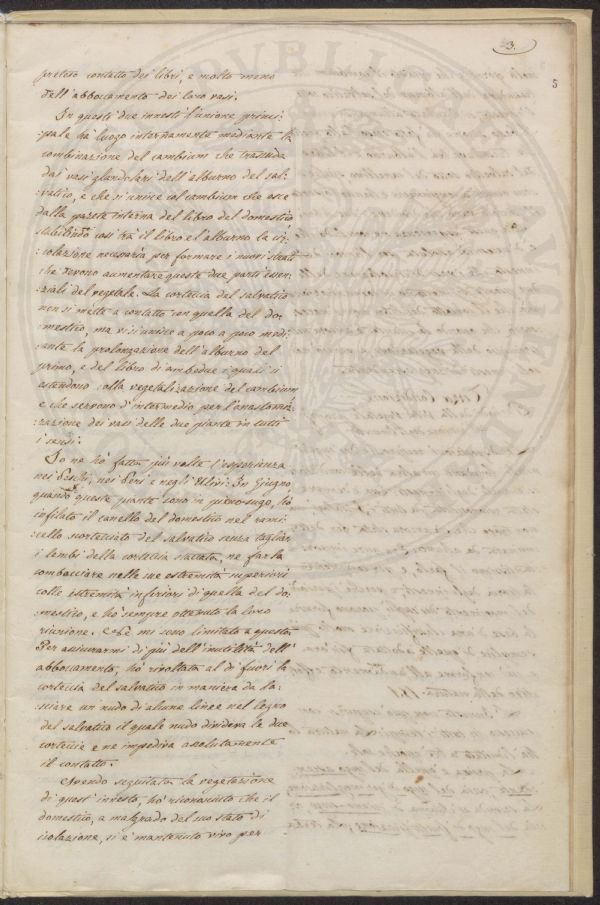 3.
5
preteso contatto dei libri, e molto meno
dell'abboccamento dei loro vasi.
In questi due innesti l'unione princi:
:pale ha luogo internamente mediante la
combinazione del cambium che trasuda
dai vasi glandolari dell'alburno del sal:
:vatico, e che si unisce col cambium che esce
dalla parete interna del libro del domestico
stabilendo così trà il libro e l'alburno la cir:
:colazione necessaria per formare i nuovi strati
che devono aumentare queste due parti essen:
:ziali del vegetale. La corteccia del salvatico
non si mette a contatto con quella del do:
:mestico, ma vi si unisce a poco a poco medi:
:ante la prolongazione dell'alburno del
primo, e del libro di ambedue i quali si
estendono colla vegetalizazione del cambium
e che servono d'intermedio per l'anastomiz:
:zazione dei vasi delle due piante in tutti
i sensi.
Io ne hò fatta più volte l'esperienza
nei Peschi, nei Peri e negli Ulivi: In Giugno
quando queste piante sono in pieno sugo, hò
infilato il canello del domestico nel rami:
:cello scortecciato del salvatico senza tagliar
i lembi della corteccia staccata, ne farla
combacciare nelle sue estremità superiori
colle estremità inferiori di quella del do:
:mestico, e hò sempre ottenuto la loro
riunione. Nè mi sono limitato a questo.
Per assicurarmi di più dell'inutilità dell'
abboccamento, hò rivoltata al di fuori la
corteccia del salvatico in maniera da la:
:sciare un nudo di alcune linee nel legno
del salvatico il quale nudo divideva le due
corteccie e ne impediva assolutamente
il contatto.
Avendo seguitata la vegetazione
di quest'innesto, hò riconosciuto che il
domestico, a malgrado del suo stato di
isolazione, si è mantenuto vivo per